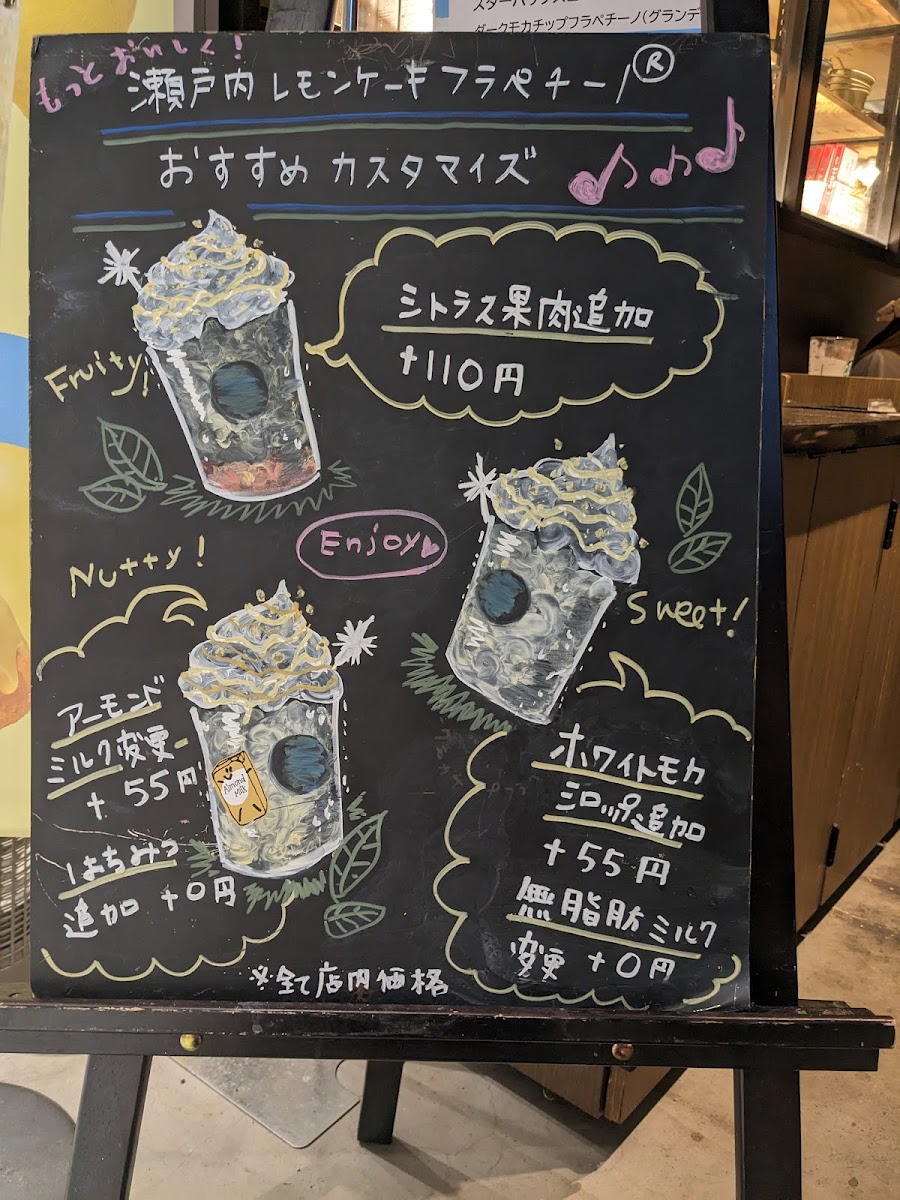 スターバックスコー
ダークモカチップフラペチーノ(グランデ
もっとおいしく!
瀬戸内レモンケーキフラペチーノ®
おすすめ カスタマイズ
シトラス果肉追加
+110円
Fruity!
Enjoy
Nutty!
Sweet!
アーモンド
ミルク変更
+55円
はちみつ
追加 +0円
Almond
Milk
ホワイトモカ
シロップ追加
+55円
無脂肪ミルク
変更 +0円
※全て店内価格